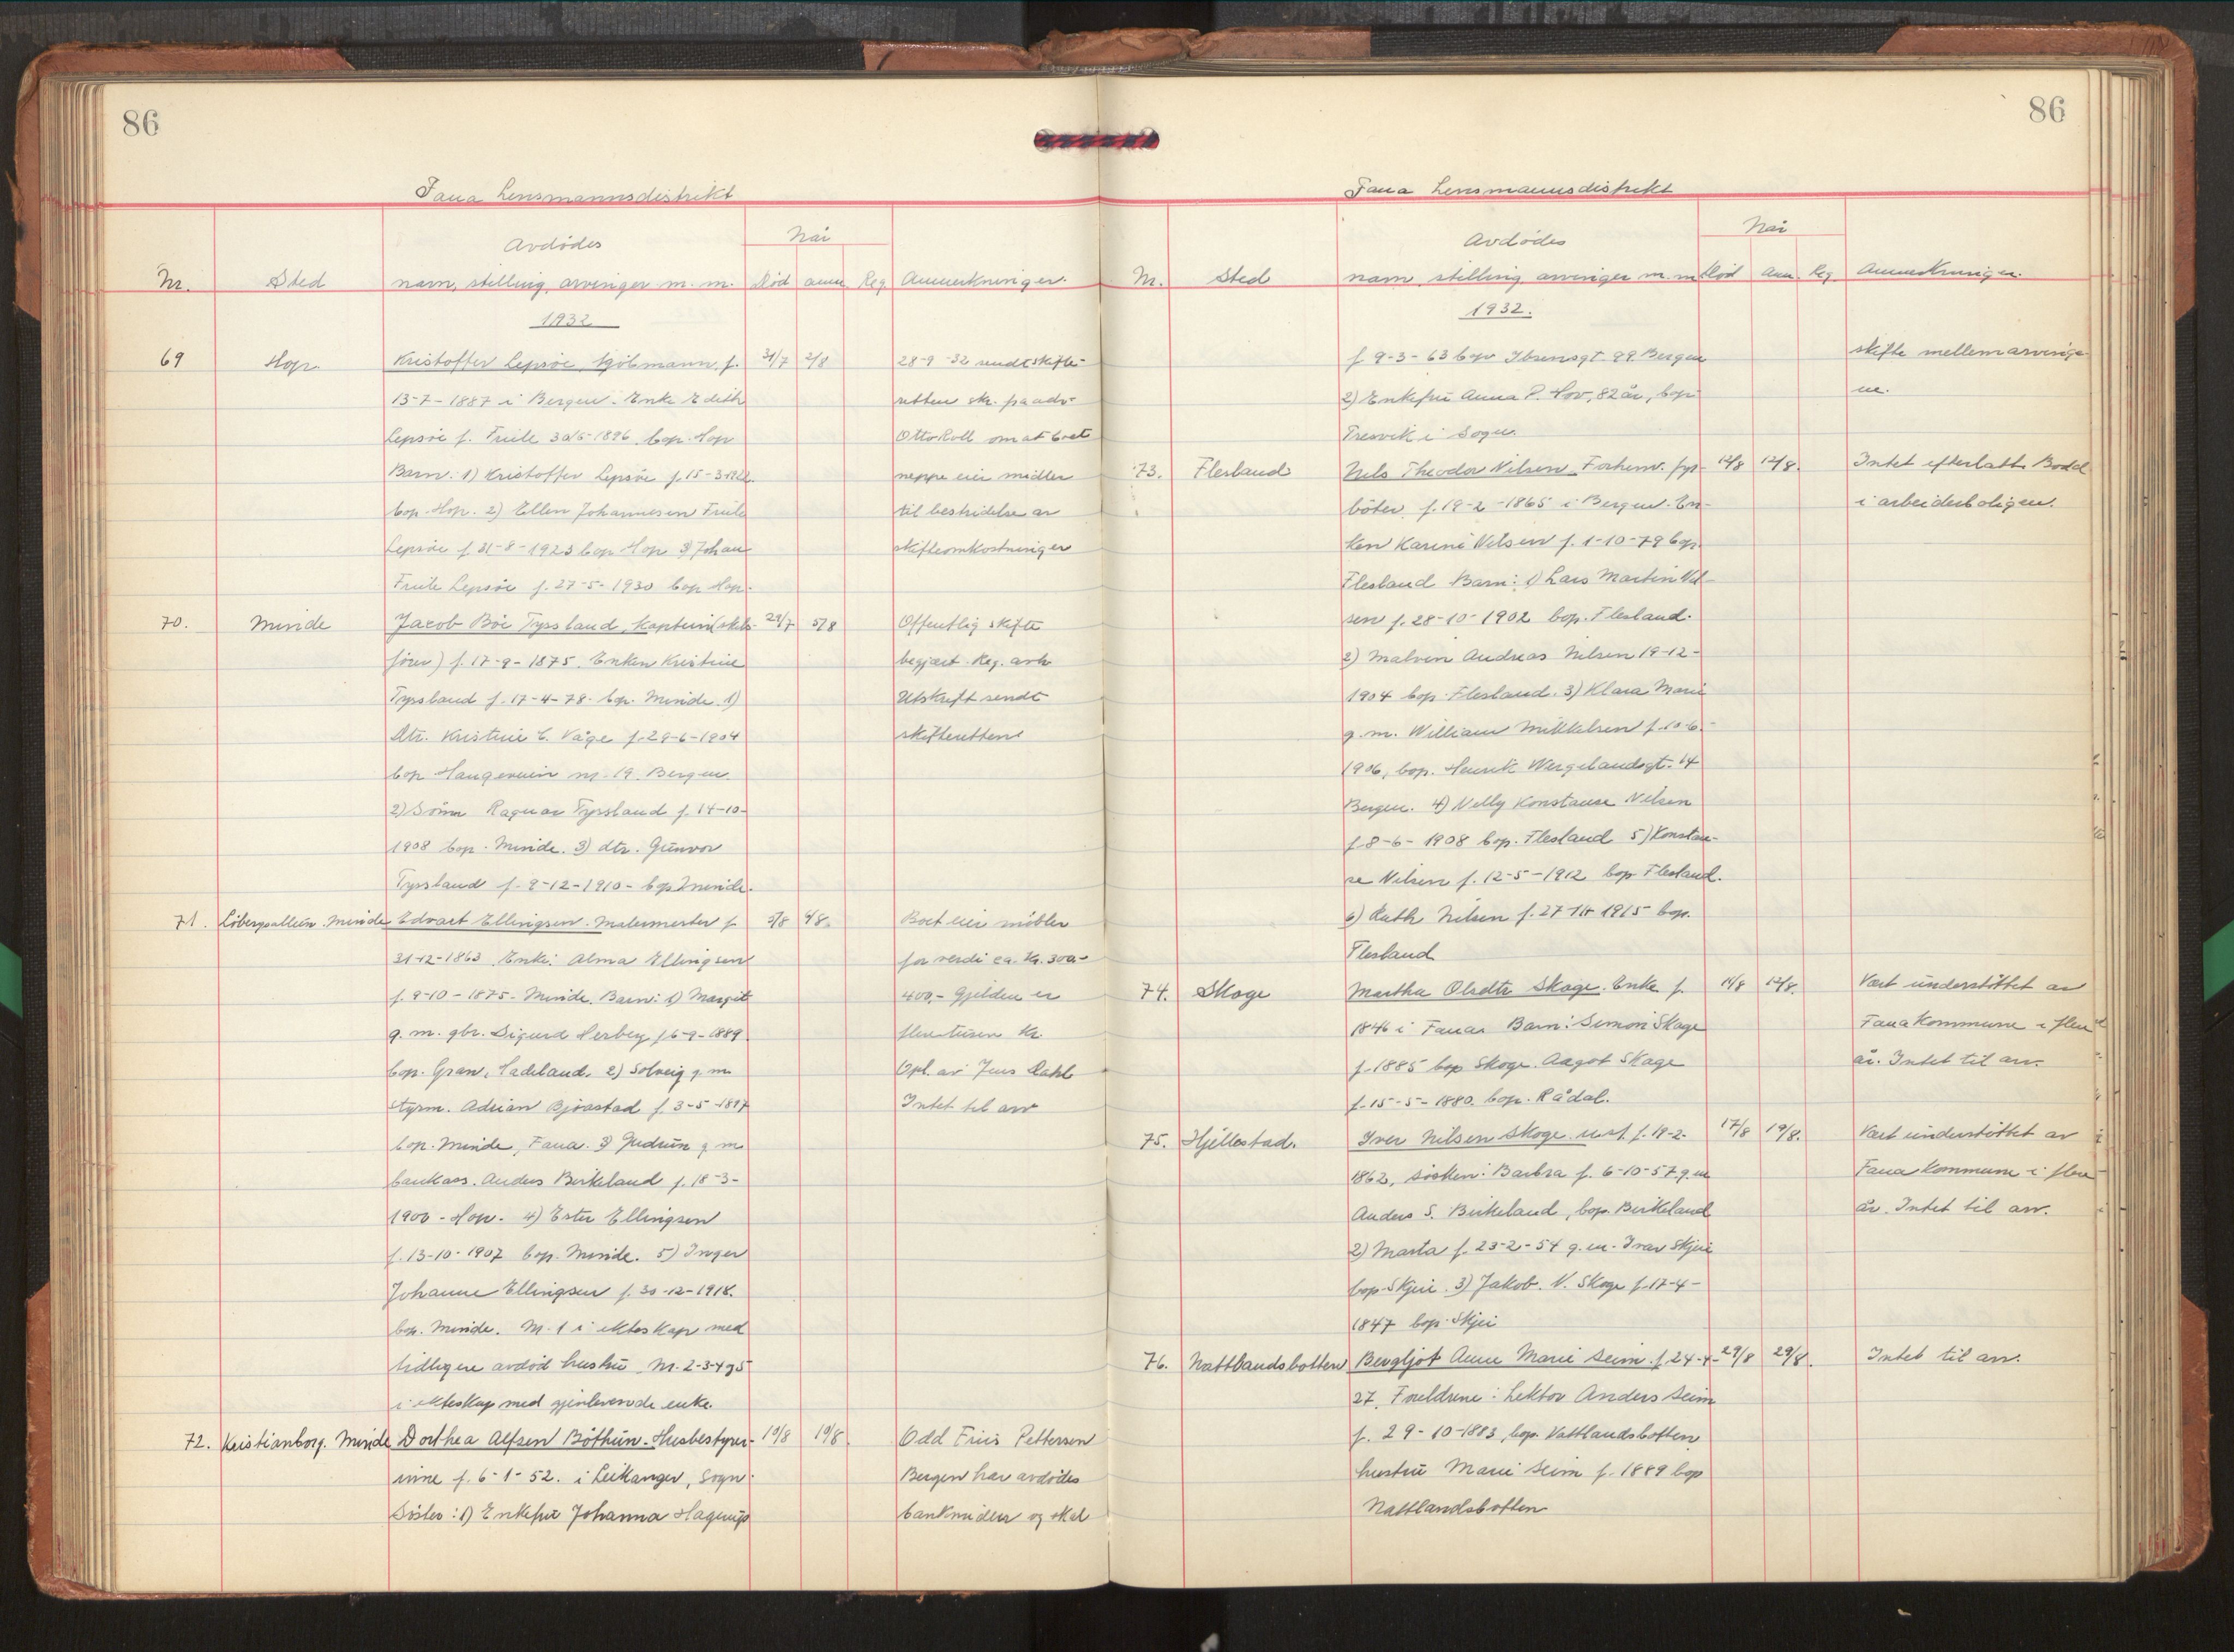 86
Fana Lensmannsdistrikt
Når
Avdödes
Nr. Sted navn, stilling, arvinger m. m. Död anm. Reg. Anmerkninger.
1932
69 Hop. Kristoffer Lepsöe, sjömann, f. 31/7 2/8 28-9-32 sendt skifte-
13-7-1887 i Bergen. Enke Edith retten skr. fra adv.
Lepsöe f. Friele 30/5-1896 bop. Hop Otto Roll om at boet
Barn: 1) Kristoffer Lepsöe f. 15-3-1922. neppe eier midler
bop. Hop. 2) Ellen Johannesen Friele til bestridelse av
Lepsöe f. 31-8-1923 bop Hop 3) Johan skifteomkostninger
Friele Lepsöe f. 27-5-1930 bop Hop.
70. Minde Jacob Böe Tyssland, Kaptein (skibs- 29/7 5/8 Offentlig skifte
förer) f. 17-9-1875. Enken Kristine begjært. Reg. avh.
Tyssland f. 17-4-78. bop. Minde. 1) Utskrift sendt
Dtr. Kristine C. Våge f. 29-6-1904 skifteretten
bop Haugeveien nr. 19. Bergen
2) Sönn Ragnar Tyssland f. 14-10-
1908 bop. Minde. 3) dtr. Gunvor
Tyssland f. 9-12-1910- bop Minde.
71. Löbergsalleen. Minde Edvart Ellingsen. Malermester f. 3/8 4/8. Boet eier möbler
31-12-1863. Enke: Alma Ellingsen for verdi ca. kr. 300-
f. 9-10-1875. Minde. Barn: 1) Margit 400,- Gjelden er
g. m. gbr. Sigurd Herberg f. 6-9-1889. flere tusen kr.
bop. Gran, Hadeland. 2) Solveig g. m. Opl. av Jens Dahl
styrm. Adrian Bjorstad f. 3-5-1897 Intet til arv
bop. Minde, Fana. 3) Gudrun g m
bankass. Anders Birkeland f. 18-3-
1900 - Hop. 4) Ester Ellingsen
f. 13-10-1907 bop. Minde. 5) Inger
Johanne Ellingsen f. 30-12-1918.
bop. Minde. Nr. 1 i ekteskap med
tidligere avdöd hustru. Nr. 2-3-4 og 5
i ekteskap med gjenlevende enke.
72. Kristianborg. Minde Dorthea Alfsen Böthun. Husbestyrer- 10/8 10/8. Odd Friis Pettersen
inne f. 6-1-52. i Leikanger, Sogn. Bergen har avdödes
Söster: 1) Enkefru Johanna Hagerup bankmidler og skal
86
Fana Lensmannsdistrikt
Når
Avdödes
Nr. Sted navn, stilling, arvinger m. m. Död Anm. Reg. Anmerkninger.
1932.
f. 9-3-63 bop Ibsensgt. 99. Bergen skifte mellem arvinge-
2) Enkefru Anna P. Hov, 82 år, bop. ne.
Fresvik i Sogn.
73. Flesland Nils Theodor Nilsen. Forhenv. fyr- 12/8 12/8. Intet efterlatt. Bodd
böter f. 19-2-1865 i Bergen. En- i arbeiderboligen.
ken Karine Nilsen f. 1-10-79 bop.
Flesland Barn: 1) Lars Martin Nil-
sen f. 28-10-1902 bop. Flesland.
2) Malvin Andreas Nilsen 19-12-
1904 bop. Flesland. 3) Klara Marie
g. m. William Mikkelsen f. 10-6-
1906, bop. Henrik Wergelandsgt. 14
Bergen. 4) Nelly Konstanse Nilsen
f. 8-6-1908 bop. Flesland 5) Konstan-
se Nilsen f. 12-5-1912 bop Flesland.
6) Ruth Nilsen f. 27 1915 bop.
Flesland
74. Skoge Martha Olsdtr Skage. Enke f. 11/8 12/8. Vært understöttet av
1846 i Fana. Barn: Simon Skage Fana Kommune i flere
f. 1885 bop Skoge. Aagot Skage år. Intet til arv.
f. 15-5-1880. bop. Rådal.
75. Hjellestad. Iver Nilsen Skoge. f. 19-2- 17/8 19/8. Vært understöttet av
1862, sösken: Barbra f. 6-10-57. g. m Fana Kommune i flere
Anders S. Birkeland, bop. Birkeland år. Intet til arv.
2) Marta f. 23-2-54 g. m. Ivar Skjei
bop Skjei. 3) Jakob. N. Skoge f. 17-4-
1847 bop. Skjei
76. Nattlandsbotten Bergljot Anne Marie Seim. f. 24-4- 29/8 29/8. Intet til arv.
27. Foreldrene: Lektor Anders Seim
f. 29-10-1883, bop. Nattlandsbotten
hustru Marie Seim f. 1889 bop
Nattlandsbotten